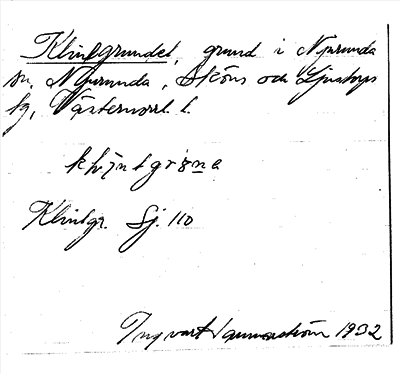 Klintgrundet, grund i Njurunda
sn, Njurunda, Sköns och Ljustorps
tg, Västernorrl. l.
Klintgr. Sj. 110
Ingvart Hammarström 1932